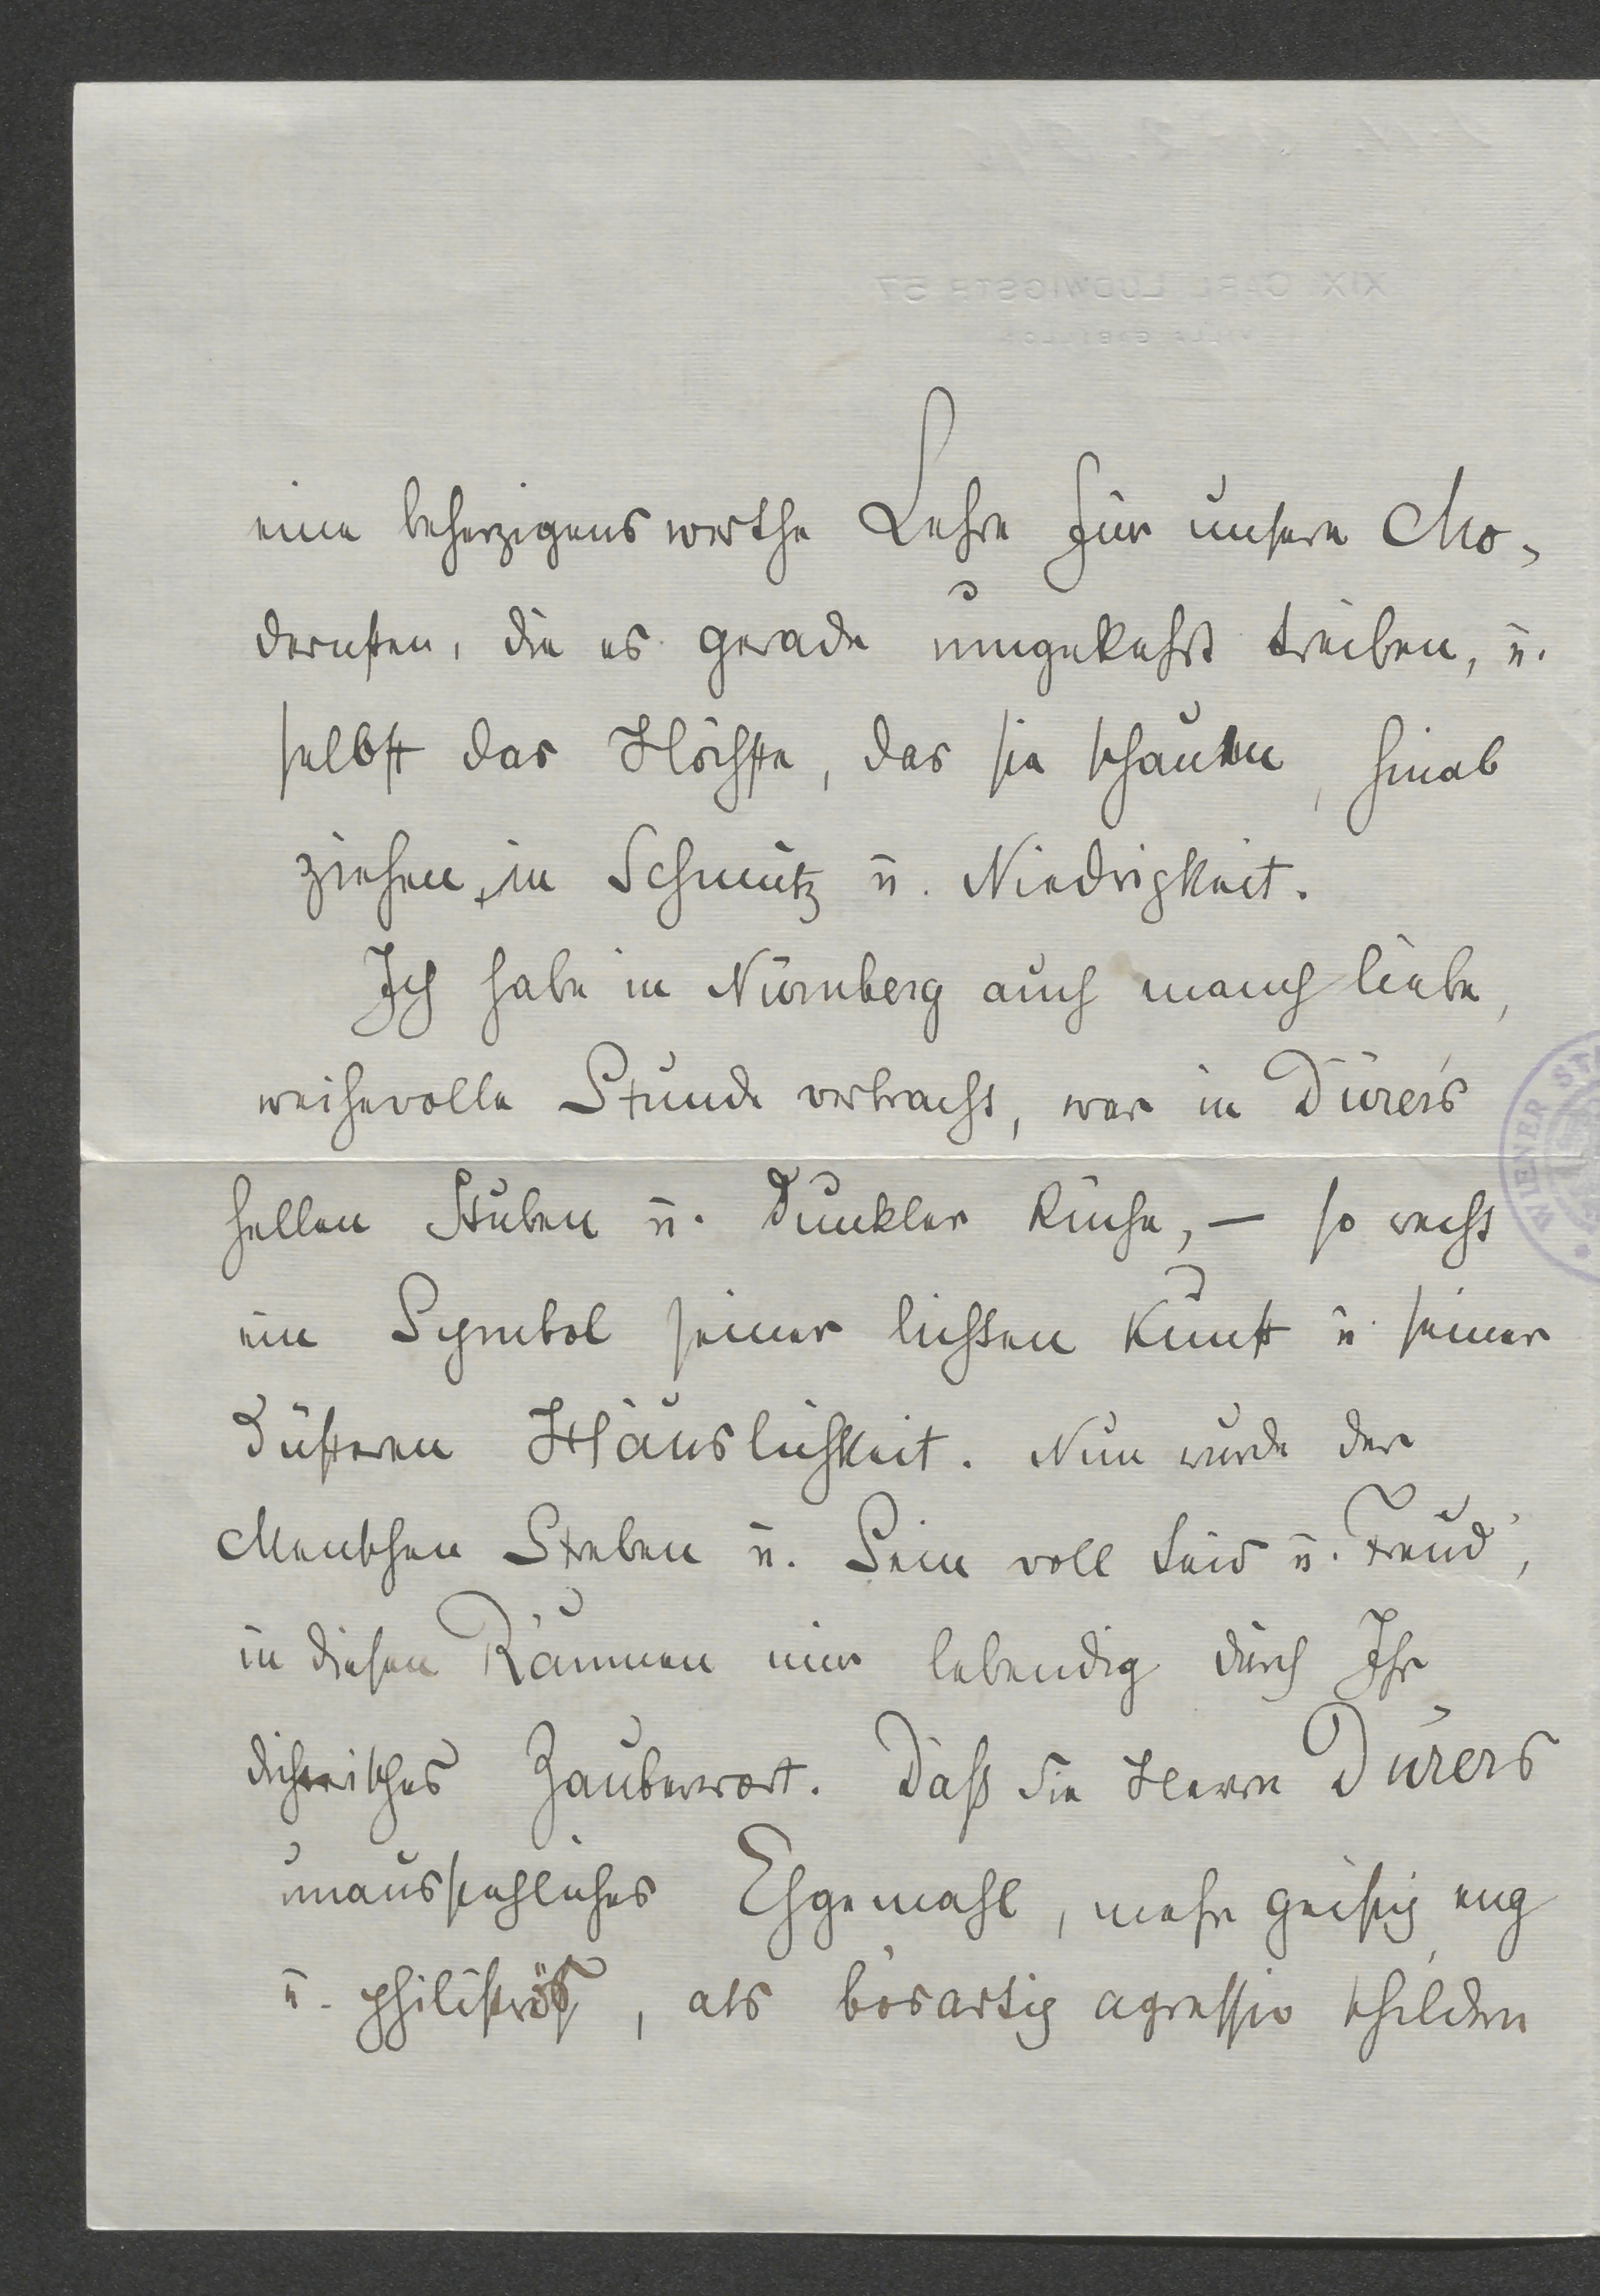 XIX CARL LUDWIGSTR 57
eine beherzigenswerthe Lehre für unsere Mo-
dernsten, die es gerade umgekehrt treiben, u.
selbst das Höchste, das sie schauen, hinab
ziehen, in Schmutz u. Niedrigkeit.
Ich habe in Nürnberg auch manch liebe,
weihevolle Stunde verbracht, war in Dürer's
hellen Stuben u. dunkler Küche, – so recht
ein Symbol seiner lichten Kunst u. seiner
düsteren Häuslichkeit. Nun wurde der
Menschen Streben u. Sein voll Leid u. Freud',
in diesen Räumen mir lebendig durch Ihr
dichterisches Zauberwort. Daß Sie Herrn Dürers
unausstehliches Ehgemahl, mehr geistig eng
u. philiströs, als bösartig agressiv schildern
WIENER ST